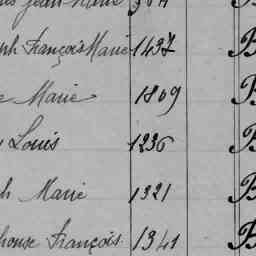 Jean Marie
ph François Marie 1437 B
e Marie 1809 B
Louis 1236 B
h Marie 1321 B
honse François 1341 B